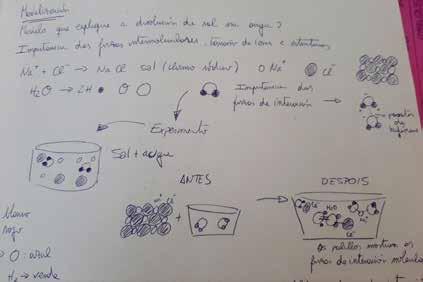 Modelización
Modelo que explique a disolución de sal en auga?
Importancia das forzas intermoleculares, tamaño de ions e estrutura
Na⁺ + Cl⁻ → NaCl sal (cloruro sodio) O Na⁺ Cl⁻
H₂O → 2H O Importancia das
forzas de interacción →
pontes de
hidróxeno
Experimento
Sal + auga
ANTES DESPOIS
Na⁺ Cl⁻
+ → H₂O
Na⁺
Cl⁻
Os palillos mostran as
forzas de interacción molecular
O: azul
H₂ → verde